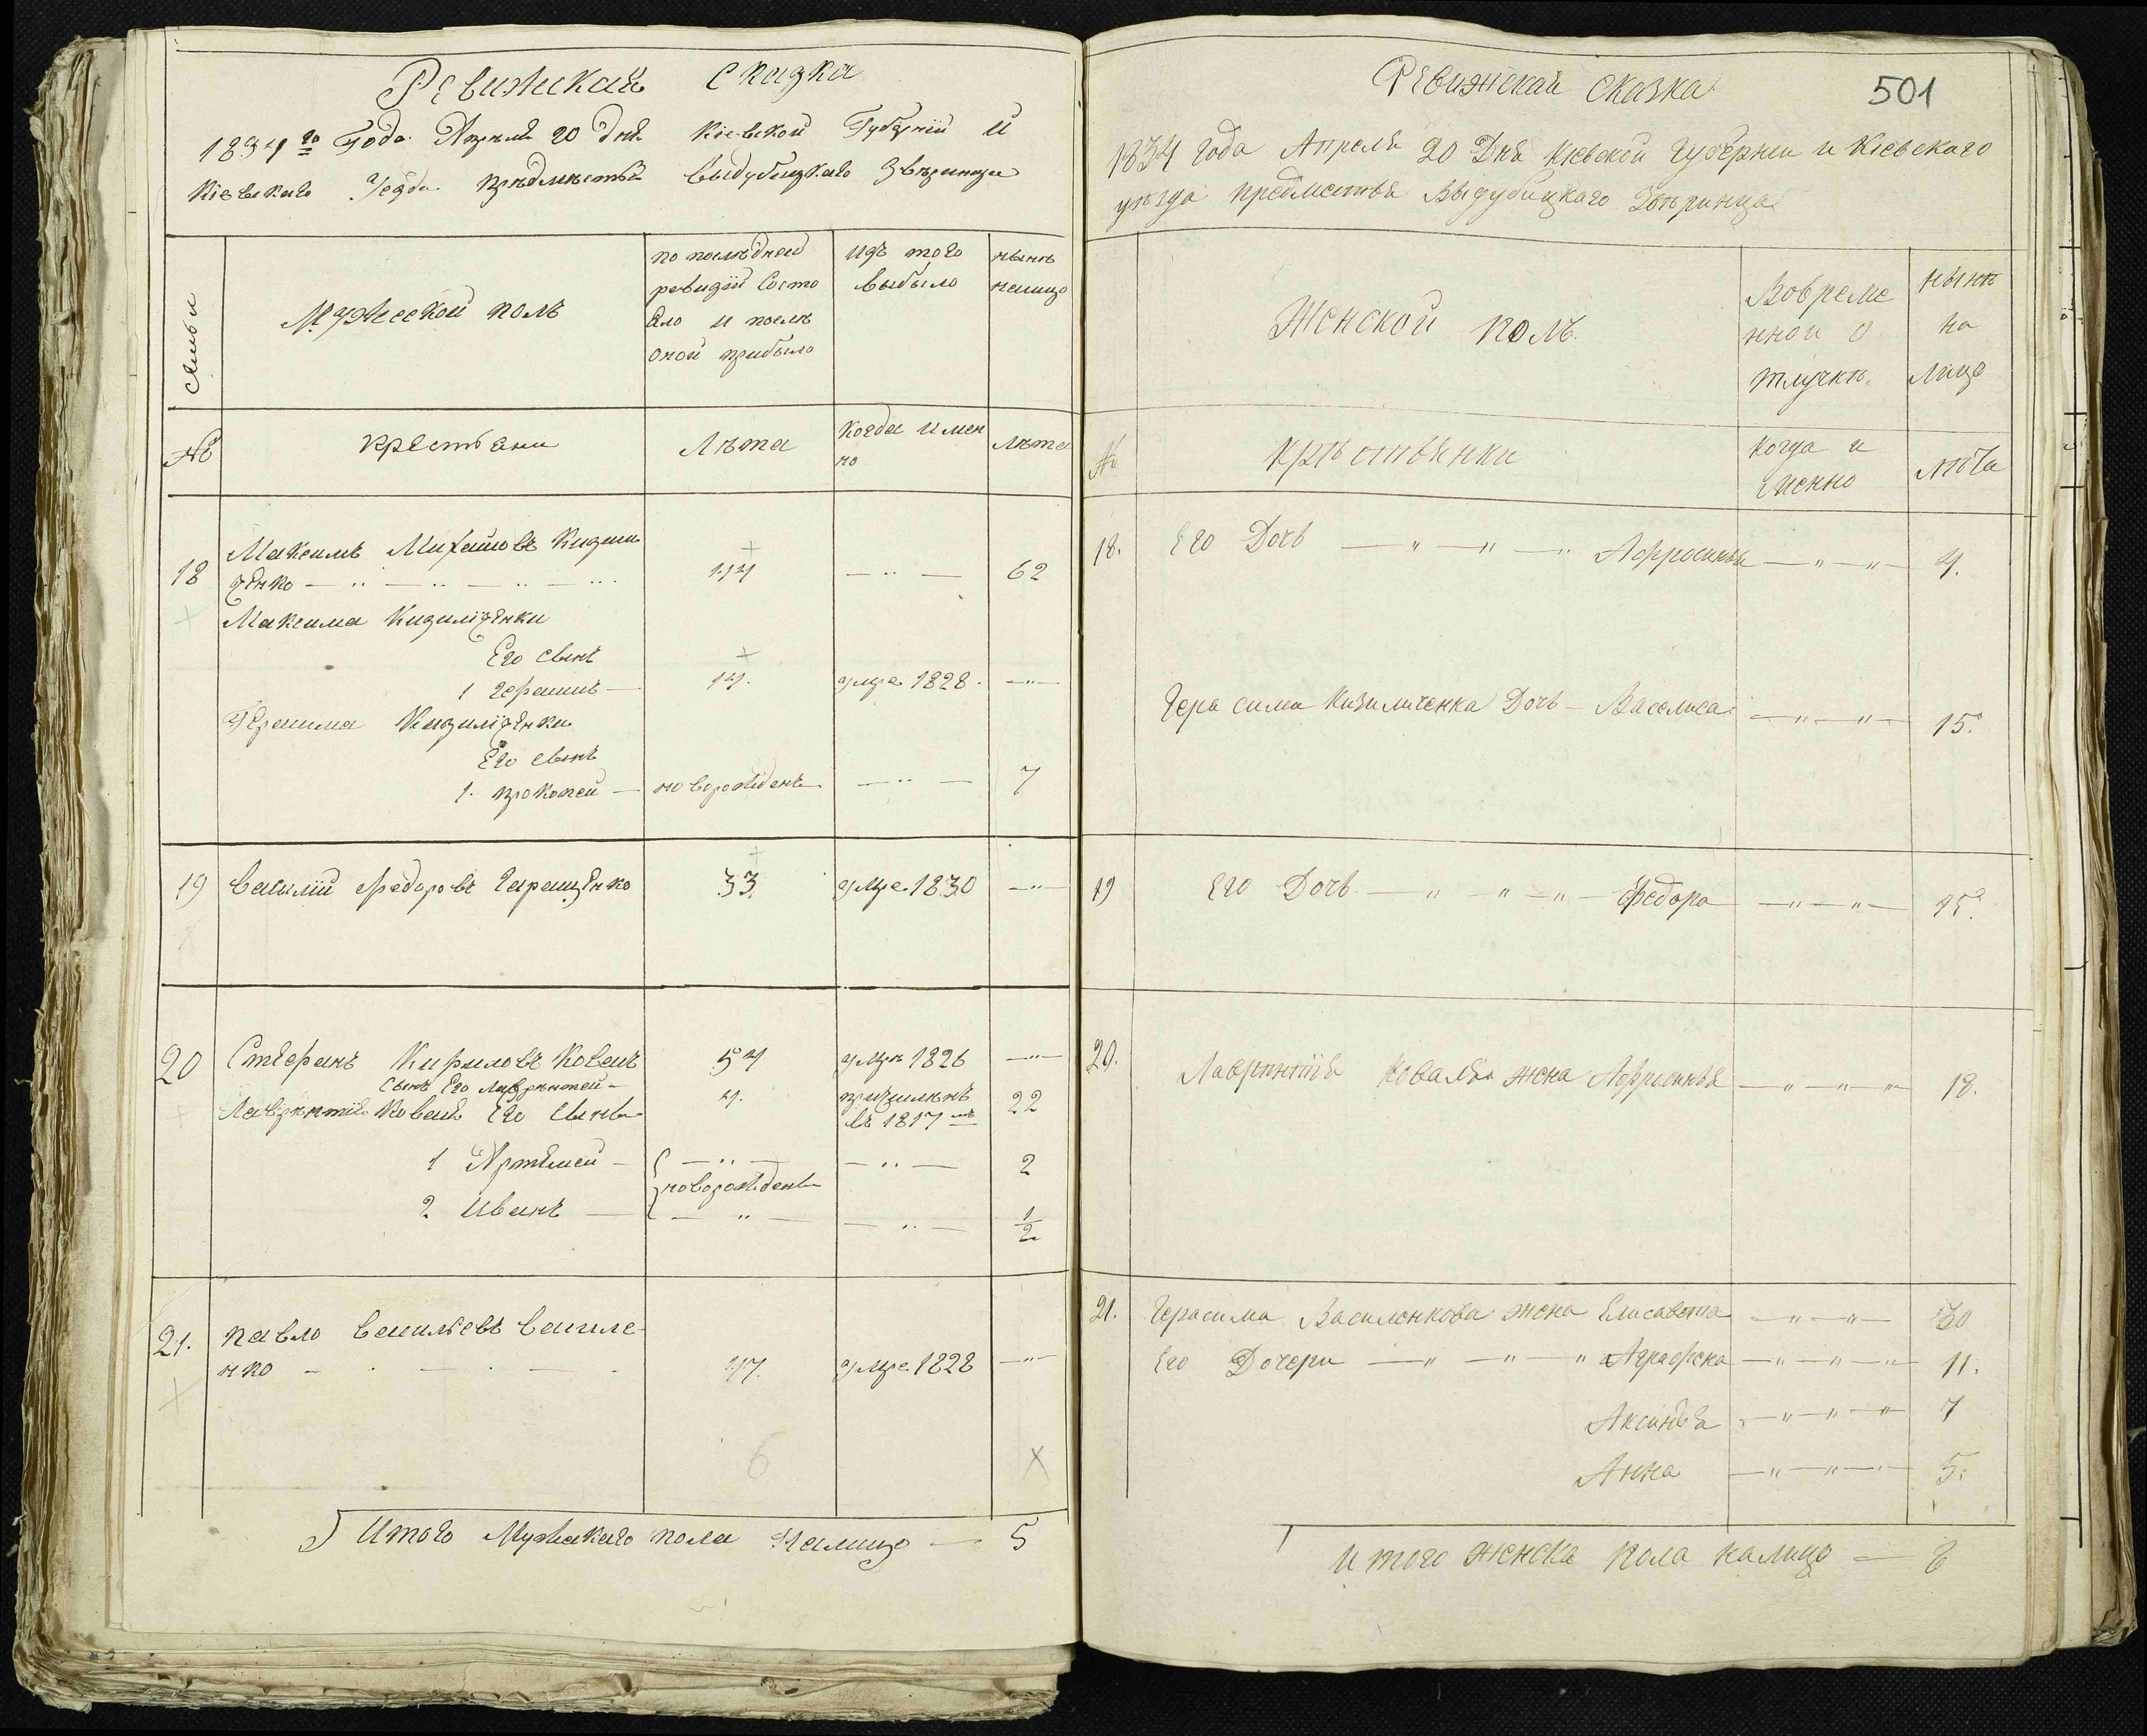 Ревижская Сказка
1834го Года Апреля 20 Дня Кіевской Губерніи И
Кіевскаго Уезда предместья Выдубицкаго Звѣринца
Семьи
Мужеской полъ
по последней
ревизіи Состо
Яло и после
Оной прибыло
Изъ того
выбыло
нынѣ
налицо
№
крестьяни
Лѣта
Когда имен
но
Лѣта
18
Максимъ Михайловъ Кизили
ченко
44
62
Максима Кизиличенки
Его сынъ
1 Герасимъ
14.
умре 1828
Герасима Кизиличенки
Его сынъ
1. прокопей
новорожденъ
7
19
Василій Федоровъ Геращенко
33
умре 1830
20
Стефанъ Кириловъ Коваль
54
умре 1826
Сынъ Его Лаврентей
4.
причисленъ
въ 1817мъ
22
Лаврентія Коваля Его Сынъ
1 Артемей
2
новорождены
2 Иванъ
1/2
21.
павло Васильевъ Василе
нко
47.
умре 1828
6
Итого Мужскаго пола Налицо — 5
Ревижская Сказка
501
1834 Года Апреля 20 Дня Кіевской Губерніи и Кіевскаго
уѣзда предместья Выдубицкаго Звѣринца
Женской полъ
Вовреме
нной о
тлучкѣ
нынѣ
на
лицо
№
крѣстьянки
когда и
менно
лѣта
18. Его Дочь Афросинья 4.
Герасима Кизиличенка Дочь Василиса 15.
19 Его Дочь Федора 15.
20. Лаврентія Коваля жена Афросинья 18.
21. Герасима Василенкова жена Елисавета 30
Его Дочери Аграфена 11.
Аксинья 7
Анна 5.
Итого женска пола налицо — 8